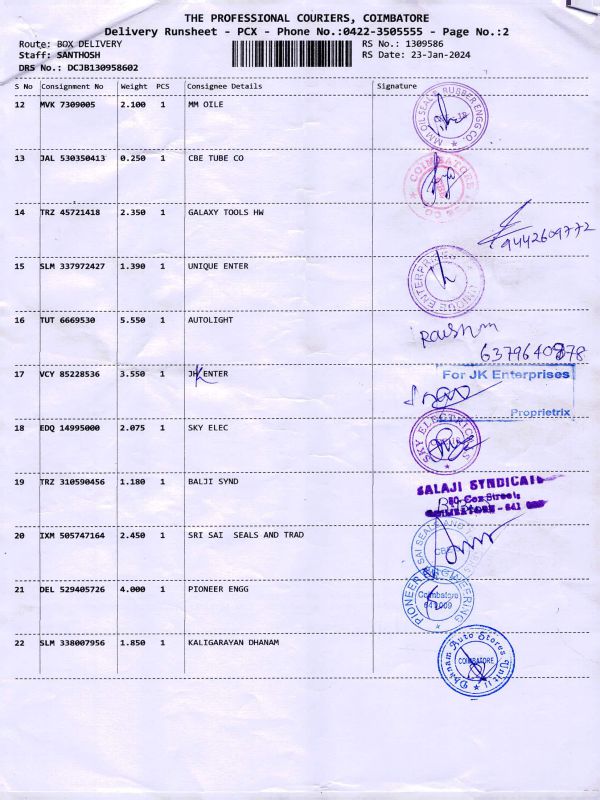 THE PROFESSIONAL COURIERS, COIMBATORE
Delivery Runsheet - PCX - Phone No.:0422-3505555 - Page No.:2
Route: BOX DELIVERY RS No.: 1309586
Staff: SANTHOSH RS Date: 23-Jan-2024
DRS No.: DCJB130958602
S No Consignment No Weight PCS Consignee Details Signature
12 MVK 7309005 2.100 1 MM OILE
MM OIL SEALS RUBBER ENGG CO.
13 JAL 530350413 0.250 1 CBE TUBE CO
COIMBATORE
14 TRZ 45721418 2.350 1 GALAXY TOOLS HW
9442609772
15 SLM 337972427 1.390 1 UNIQUE ENTER
UNIQUE ENTERPRISES
16 TUT 6669530 5.550 1 AUTOLIGHT
6379640878
17 VCY 85228536 3.550 1 JK ENTER
For JK Enterprises
Proprietrix
18 EDQ 14995000 2.075 1 SKY ELEC
SKY ELECTRICALS
19 TRZ 310590456 1.180 1 BALJI SYND
BALAJI SYNDICATE
Cox Street,
COIMBATORE - 641
20 IXM 505747164 2.450 1 SRI SAI SEALS AND TRAD
SAI SEALS AND
CBE
21 DEL 529405726 4.000 1 PIONEER ENGG
PIONEER ENGINEERING
Coimbatore
641 009
22 SLM 338007956 1.850 1 KALIGARAYAN DHANAM
Dhanam Auto Stores Unit II
COIMBATORE